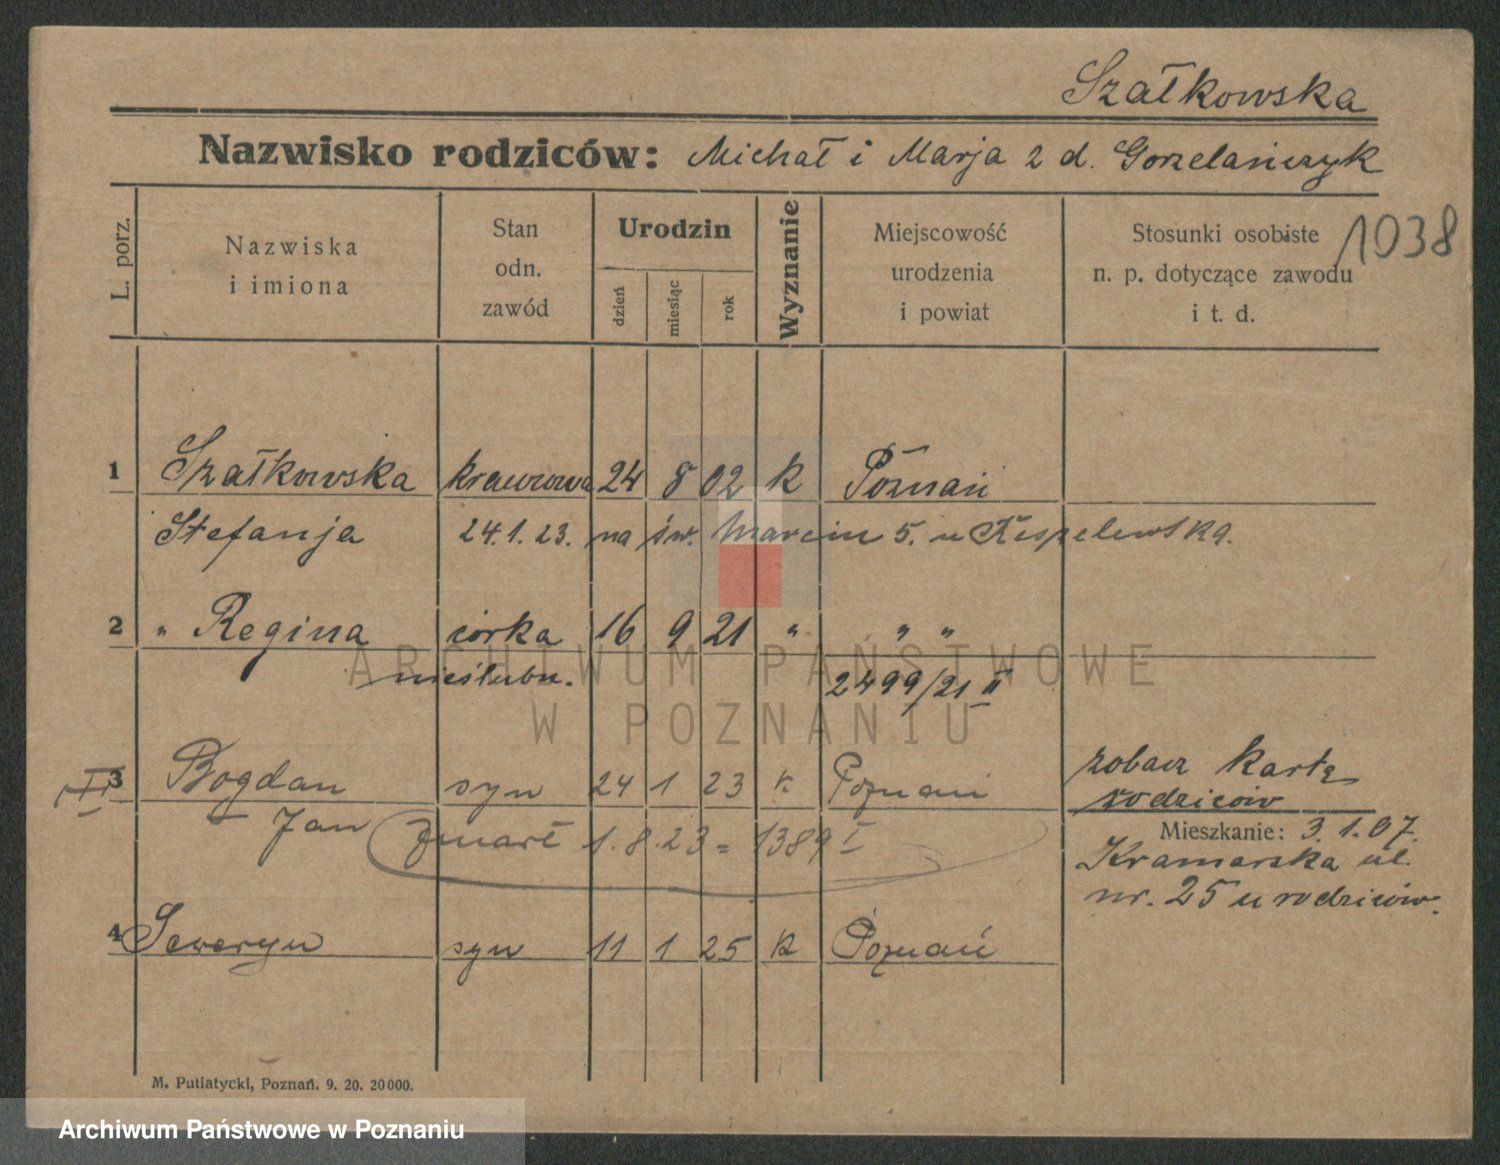 Szałkowska
Nazwisko rodziców: Michał i Marja 2 d. Gorzelańczyk
1038
L. porz.
Nazwiska
i imiona
Stan
odn.
zawód
Urodzin
dzień
miesiąc
rok
Wyznanie
Miejscowość
urodzenia
i powiat
Stosunki osobiste
n. p. dotyczące zawodu
i t. d.
1 Szałkowska krawcowa 24 8 02 k Poznań
Stefanja 24.1.23. na św. Marcin 5. u
2 " Regina córka 16 9 21 " " "
nieślubn. 2499/21 II
3 Bogdan syn 24 1 23 k Poznań
zobacz kartę
rodziców
Jan zmarł 1.8.23 = 1389 I
Mieszkanie: 3.1.07.
Kramarska ul.
nr. 25 u rodziców.
4 Seweryn syn 11 1 25 k Poznań
M. Putiatycki, Poznań. 9. 20. 20000.
ARCHIWUM PAŃSTWOWE
W POZNANIU
Archiwum Państwowe w Poznaniu